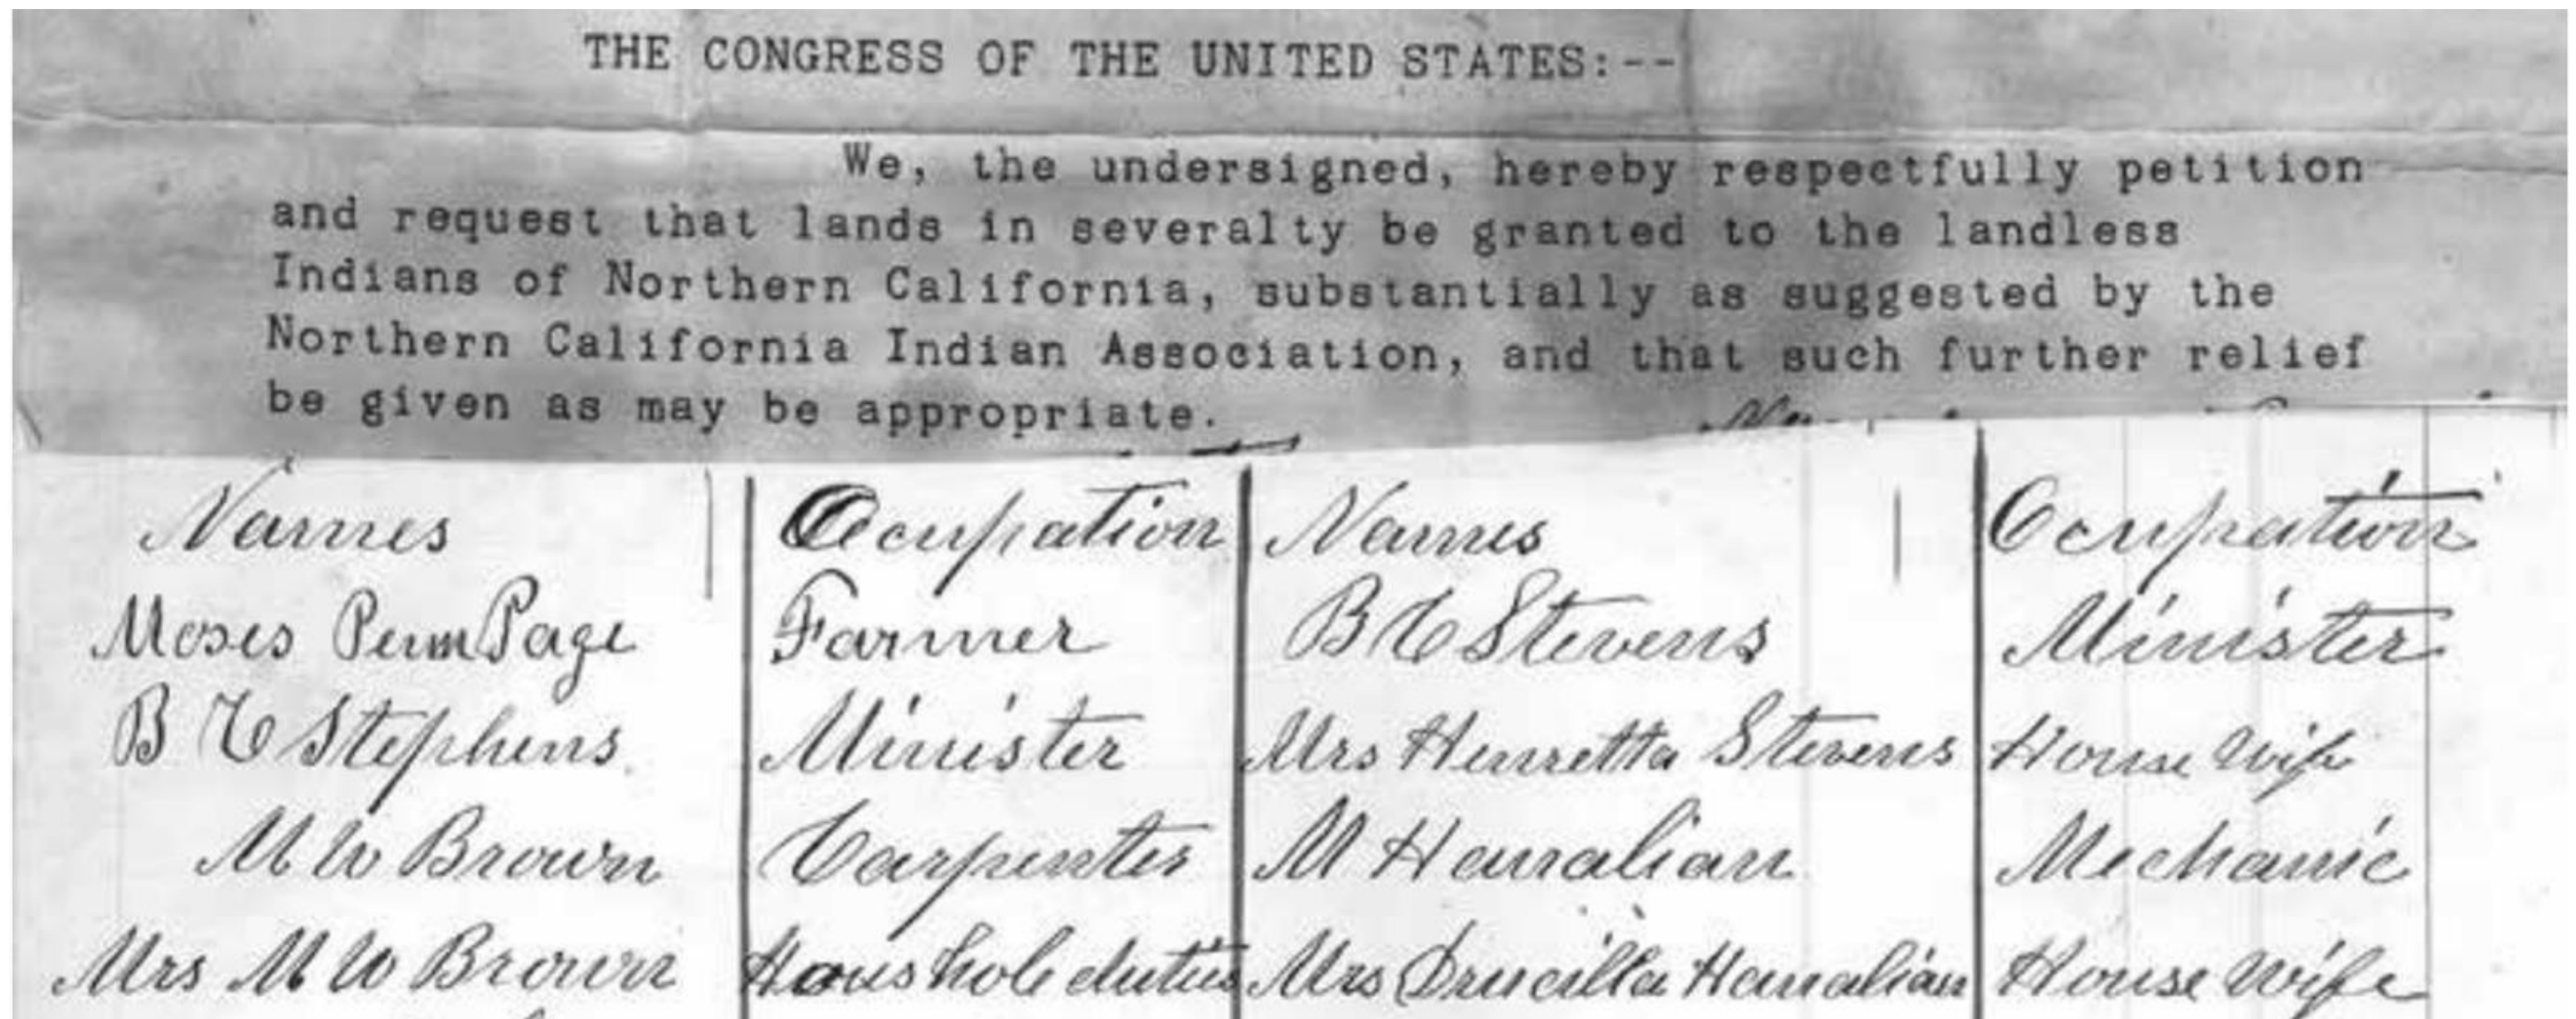 THE CONGRESS OF THE UNITED STATES:--
We, the undersigned, hereby respectfully petition
and request that lands in severalty be granted to the landless
Indians of Northern California, substantially as suggested by the
Northern California Indian Association, and that such further relief
be given as may be appropriate.
Names Ocupation Names Ocupation
Moses Penn Page Farmer B C Stevens Minister
B C Stephens Minister Mrs Henretta Stevens House Wife
M W Brown Carpenter M Hanalian Mechanic
Mrs M W Brown Houshole duties Mrs Drucilla Hanalian House Wife